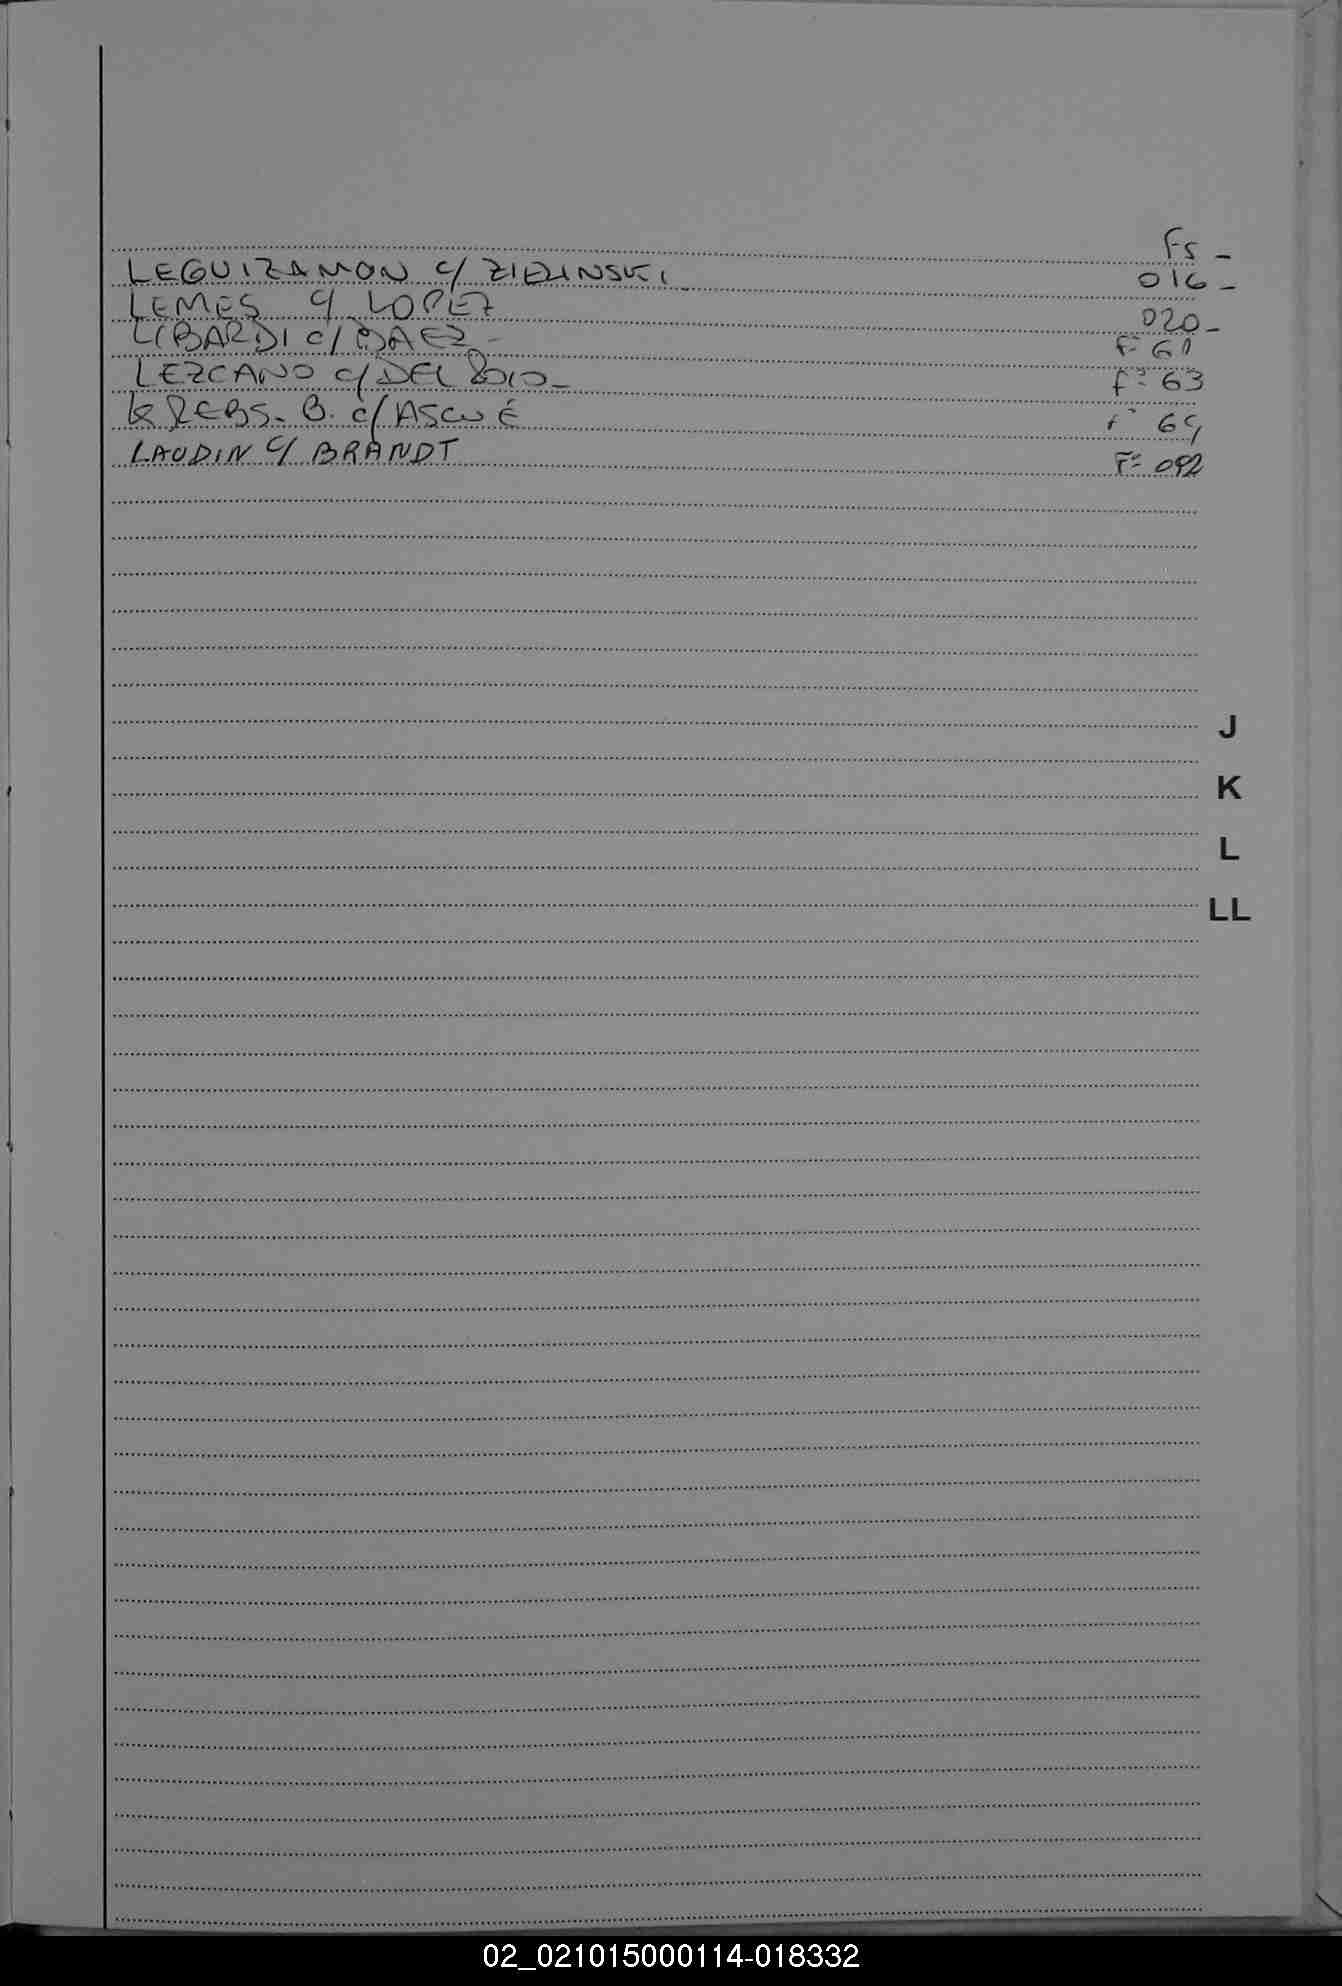 Fs -
LEGUIZAMON c/ ZIELINSKI - 016 -
LEMES c/ LOPEZ 020 -
LIBARDI c/ BAEZ - Fº 61
LEZCANO c/ DEL - Fº 63
KREBS - B. c/ ASCUÉ Fº
LAUDIN c/ BRANDT Fº 092
J
K
L
LL
02_021015000114-018332